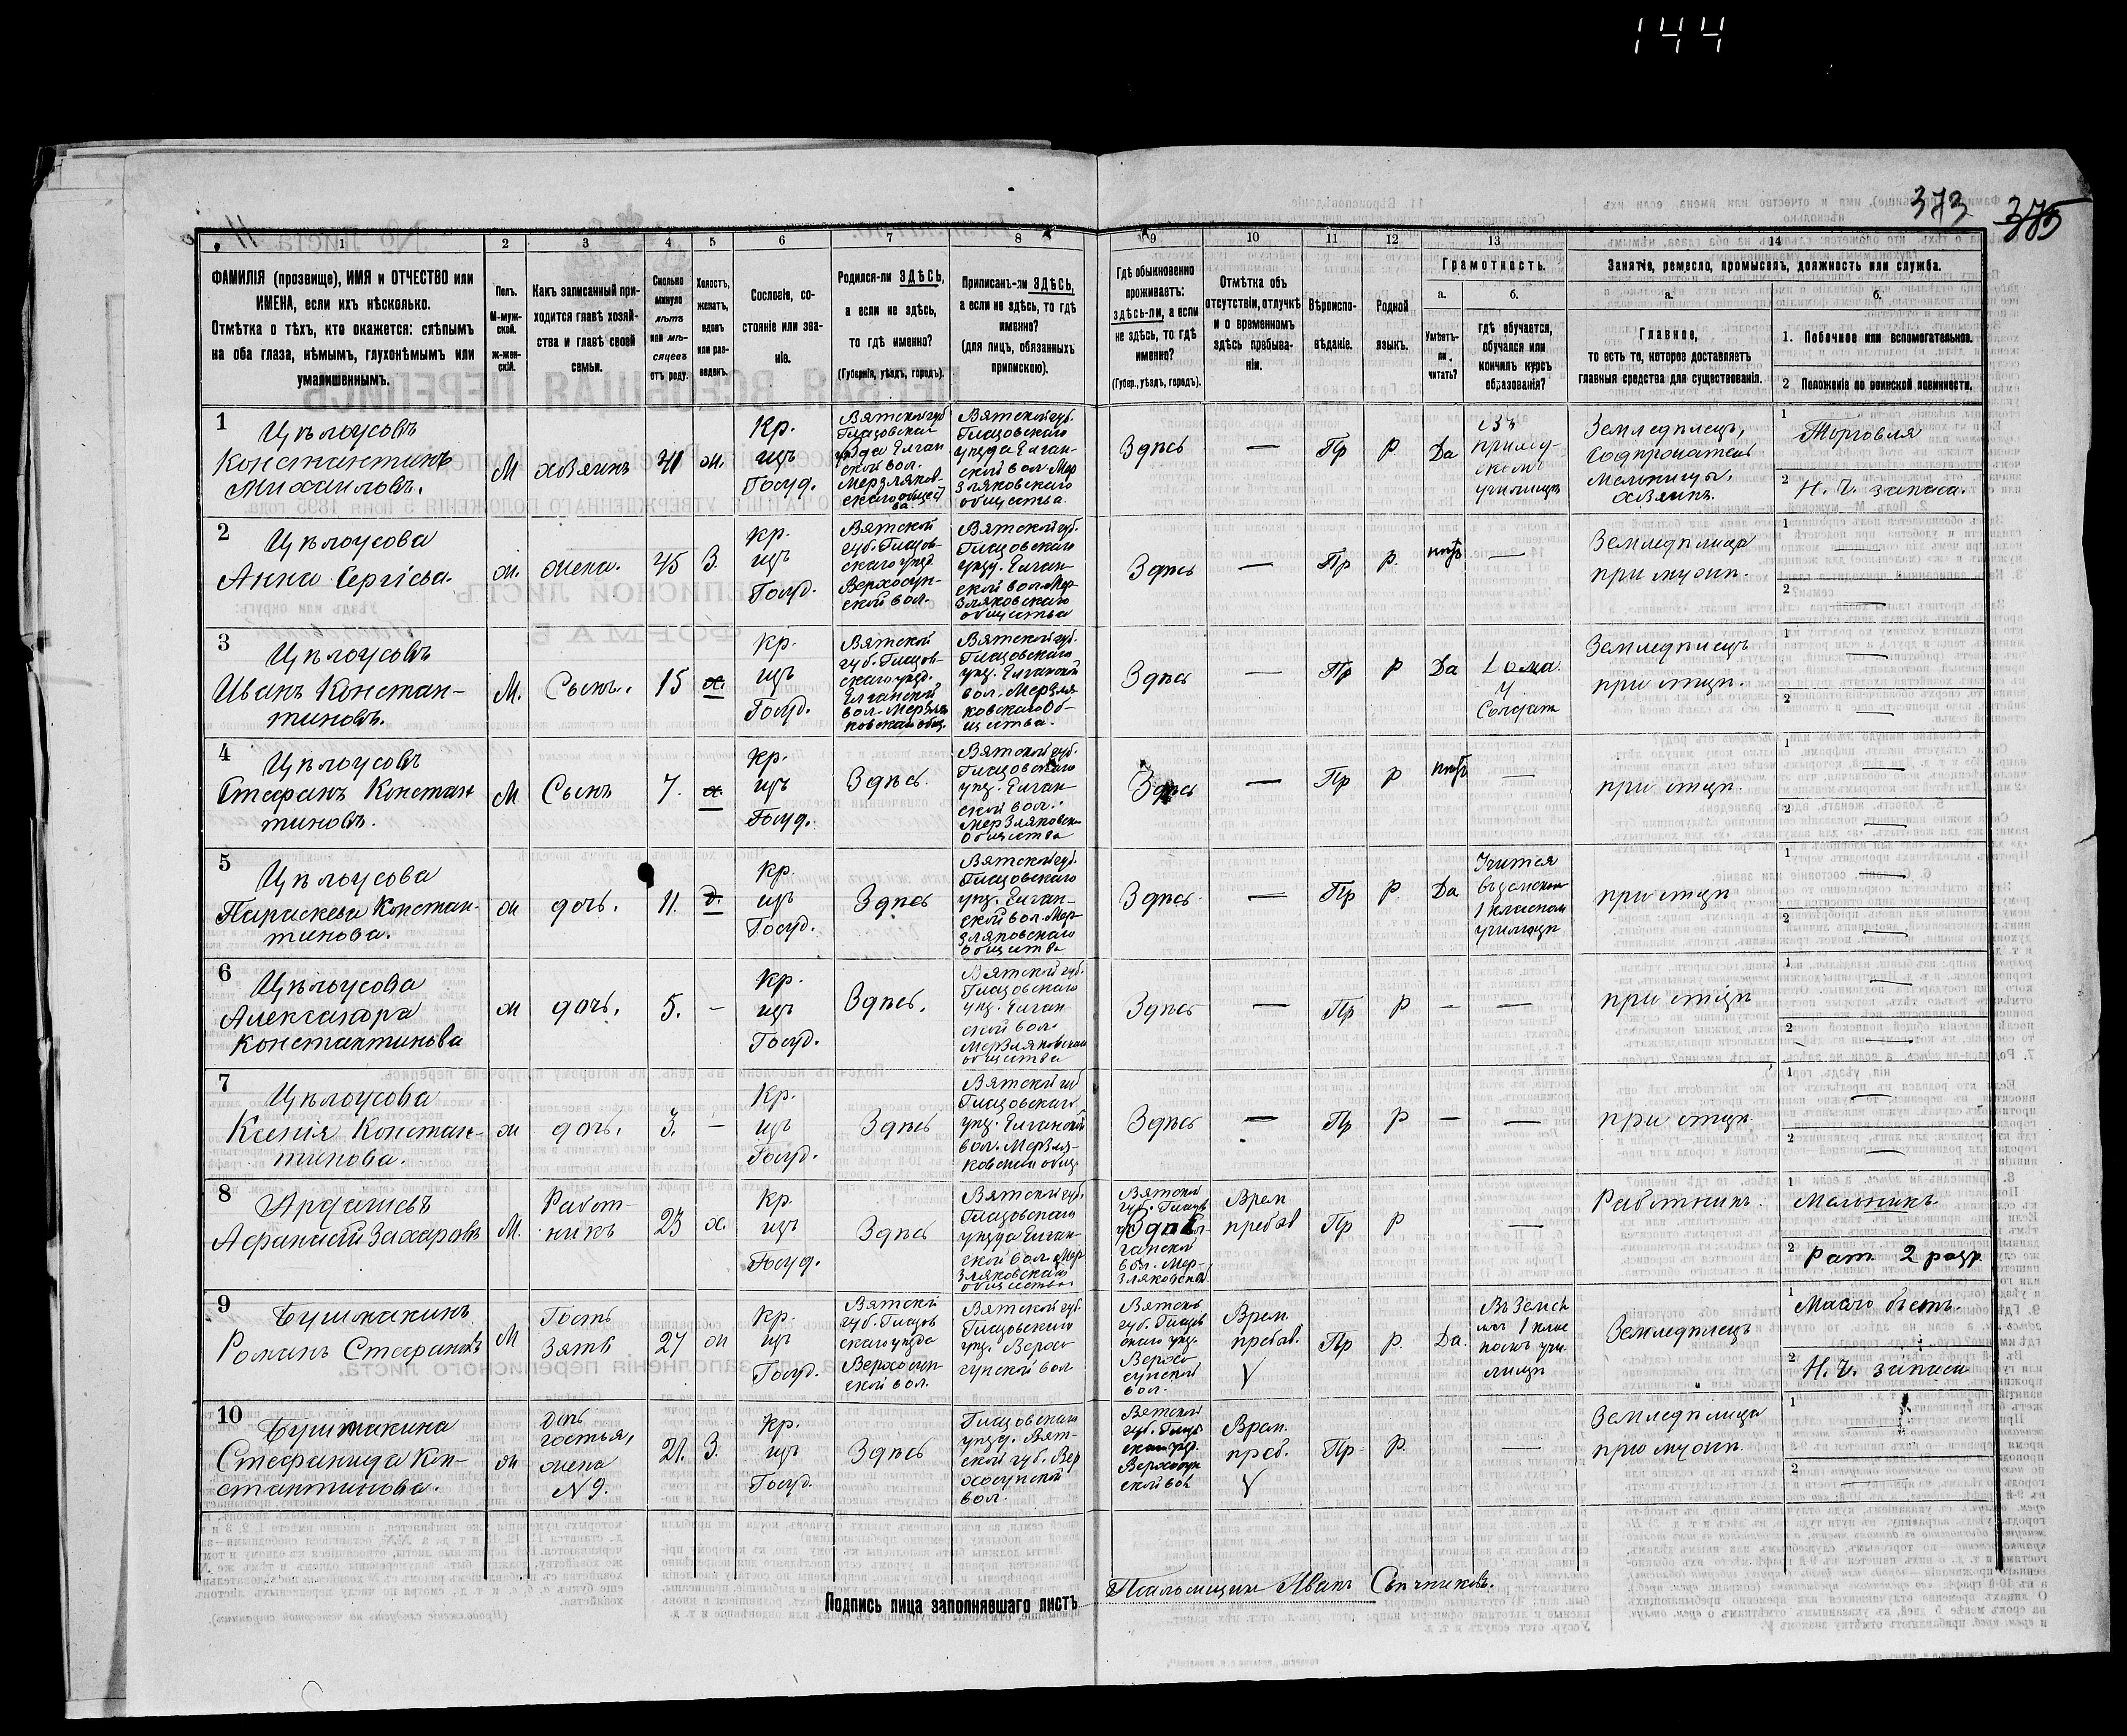 144
373
375
1
2
3
4
5
6
7
8
9
10
11
12
13
14
ФАМИЛІЯ (прозвище), ИМЯ и ОТЧЕСТВО или
ИМЕНА, если ихъ нѣсколько.
Отмѣтка о тѣхъ, кто окажется: слѣпымъ
на оба глаза, нѣмымъ, глухонѣмымъ или
умалишеннымъ.
Полъ.
М-муж-
ской.
ж-жен-
скій.
Какъ записанный при-
ходится главѣ хозяй-
ства и главѣ своей
семьи.
Сколько
минуло
лѣтъ
или мѣ-
сяцевъ
отъ роду.
Холостъ,
женатъ,
вдовъ
или раз-
веденъ.
Сословіе, со-
стояніе или зва-
ніе.
Родился-ли ЗДѢСЬ,
а если не здѣсь,
то гдѣ именно?
(Губернія, уѣздъ, городъ).
Приписанъ-ли ЗДѢСЬ,
а если не здѣсь, то гдѣ
именно?
(для лицъ, обязанныхъ
припискою).
Гдѣ обыкновенно
проживаетъ:
здѣсь-ли, а если
не здѣсь, то гдѣ
именно?
(Губер., уѣздъ, городъ).
Отмѣтка объ
отсутствіи, отлучкѣ
и о временномъ
здѣсь пребыва-
ніи.
Вѣроиспо-
вѣданіе.
Родной
языкъ.
Грамотность.
а.
Умѣетъ-
ли
читать?
б.
гдѣ обучается,
обучался или
кончилъ курсъ
образованія?
Занятіе, ремесло, промыселъ, должность или служба.
а.
Главное,
то есть то, которое доставляетъ
главныя средства для существованія.
б.
1. Побочное или вспомогательное.
2 Положеніе по воинской повинности.
1
Цѣлоусовъ
Константинъ
Михаиловъ.
М
хозяинъ
41
ж.
Кр.
изъ
Госуд.
Вятской губ
Глазовскаго
уѣзда Елган
ской вол.
Мерзляков-
скаго общест
ва.
Вятской губ.
Глазовскаго
уѣзда Елган-
ской вол. Мер
зляковскаго
общества.
Здѣсь
—
Пр
Р.
Да
Въ
училищѣ
Земледѣлецъ,
Содержатель
мельницы,
хозяинъ.
1
Торговля
2
Н. Ч. запаса.
2
Цѣлоусова
Анна Сергіева.
ж.
жена.
45
З.
Кр.
изъ
Госуд.
Вятской
губ. Глазов-
скаго уѣзд
Верхосун-
ской вол.
Вятской губ.
Глазовскаго
уѣзд. Елган-
ской вол. Мер
зляковскаго
общества
Здѣсь
—
Пр
Р.
нѣтъ
—
Земледѣлица
при мужѣ.
1
—
2
—
3
Цѣлоусовъ
Иванъ Констан-
тиновъ.
М.
Сынъ.
15
х.
Кр.
изъ
Госуд.
Вятской
губ. Глазов-
скаго уѣзд.
Елганской
вол. Мерзля
ковскаго общ.
Вятской губ.
Глазовскаго
уѣзд. Елганской
вол. Мерзля
ковскаго об-
щества.
Здѣсь
—
Пр
Р
Да
Дома
у
Солдата
Земледѣлецъ
при отцѣ.
1
—
2
—
4
Цѣлоусовъ
Стефанъ Констан
тиновъ.
М
Сынъ
7.
х.
Кр.
изъ
Госуд.
Здѣсь.
Вятской губ.
Глазовскаго
уѣзд. Елган
ской вол.
Мерзляковск
общества
Здѣсь
—
Пр
Р
нѣтъ
—
при отцѣ.
1
—
2
—
5
Цѣлоусова
Параскева Констан-
тинова.
ж
дочь.
11.
д.
Кр.
изъ
Госуд.
Здѣсь
Вятской губ.
Глазовскаго
уѣзд. Елган-
ской вол. Мер
зляковскаго
общества
Здѣсь.
—
Пр
Р.
Да
Учится
въ земском
1 класном
училищѣ
при отцѣ
1
—
2
—
6
Цѣлоусова
Александра
Константинова
ж
дочь.
5.
—
Кр.
изъ
Госуд.
Здѣсь.
Вятской губ.
Глазовскаго
уѣзд. Елган
ской вол.
Мерзляковскаго
общества
Здѣсь
—
Пр
Р
—
—
при отцѣ
1
—
2
—
7
Цѣлоусова
Ксенія Констан-
тинова.
ж
дочь.
3.
—
Кр.
изъ
Госуд.
Здѣсь
Вятской губ
Глазовскаго
уѣзд. Елганской
вол. Мерзля-
ковскаго общ.
Здѣсь
—
Пр
Р
—
—
при отцѣ.
1
—
2
—
8
Афанасій Захаровъ
М.
Работ-
никъ
23
х
Кр
изъ
Госуд.
Здѣсь
Вятской губ.
Глазовскаго
уѣзда Елган-
ской вол. Мер
зляковскаго
общества
Вятской
губ. Глазов
ганской
вол. Мер-
зляковской
Врем
пребыв
Пр
Р
—
Работникъ.
1
Мельникъ.
2
Рат. 2 разр.
9
Бушмакинъ
Романъ Стефановъ
М
Гость
Зять
27
ж
Кр.
изъ
Госуд.
Вятской
губ. Глазов
скаго уѣзда
Верхосун
ской вол.
Вятской губ.
Глазовскаго
уѣзд. Верхо
сунской вол
Вятской
губ. Глазов
скаго уѣзд.
Верхо
сунской
вол.
Врем.
пребыв.
V
Пр
Р.
Да.
Въ Земск
омъ 1 клас
номъ учи
лищѣ
Земледѣлецъ
1
Масло бьетъ.
2
Н. Ч. запаса
10
Бушмакина
Стефанида Кон-
стантинова.
ж
дочь
гостья,
жена
N 9.
21.
З.
Кр.
изъ
Госуд.
Здѣсь
Глазовскаго
уѣзд. Вят-
ской губ. Вер
хосунской
вол.
Вятской
губ. Глаз
скаго уѣзд.
Верхосун
ской вол
Врем.
преб.
V
Пр
Р.
—
Земледѣлица
при мужѣ.
1
2
—
Подпись лица заполнявшаго листъ
Псаломщик Иванъ